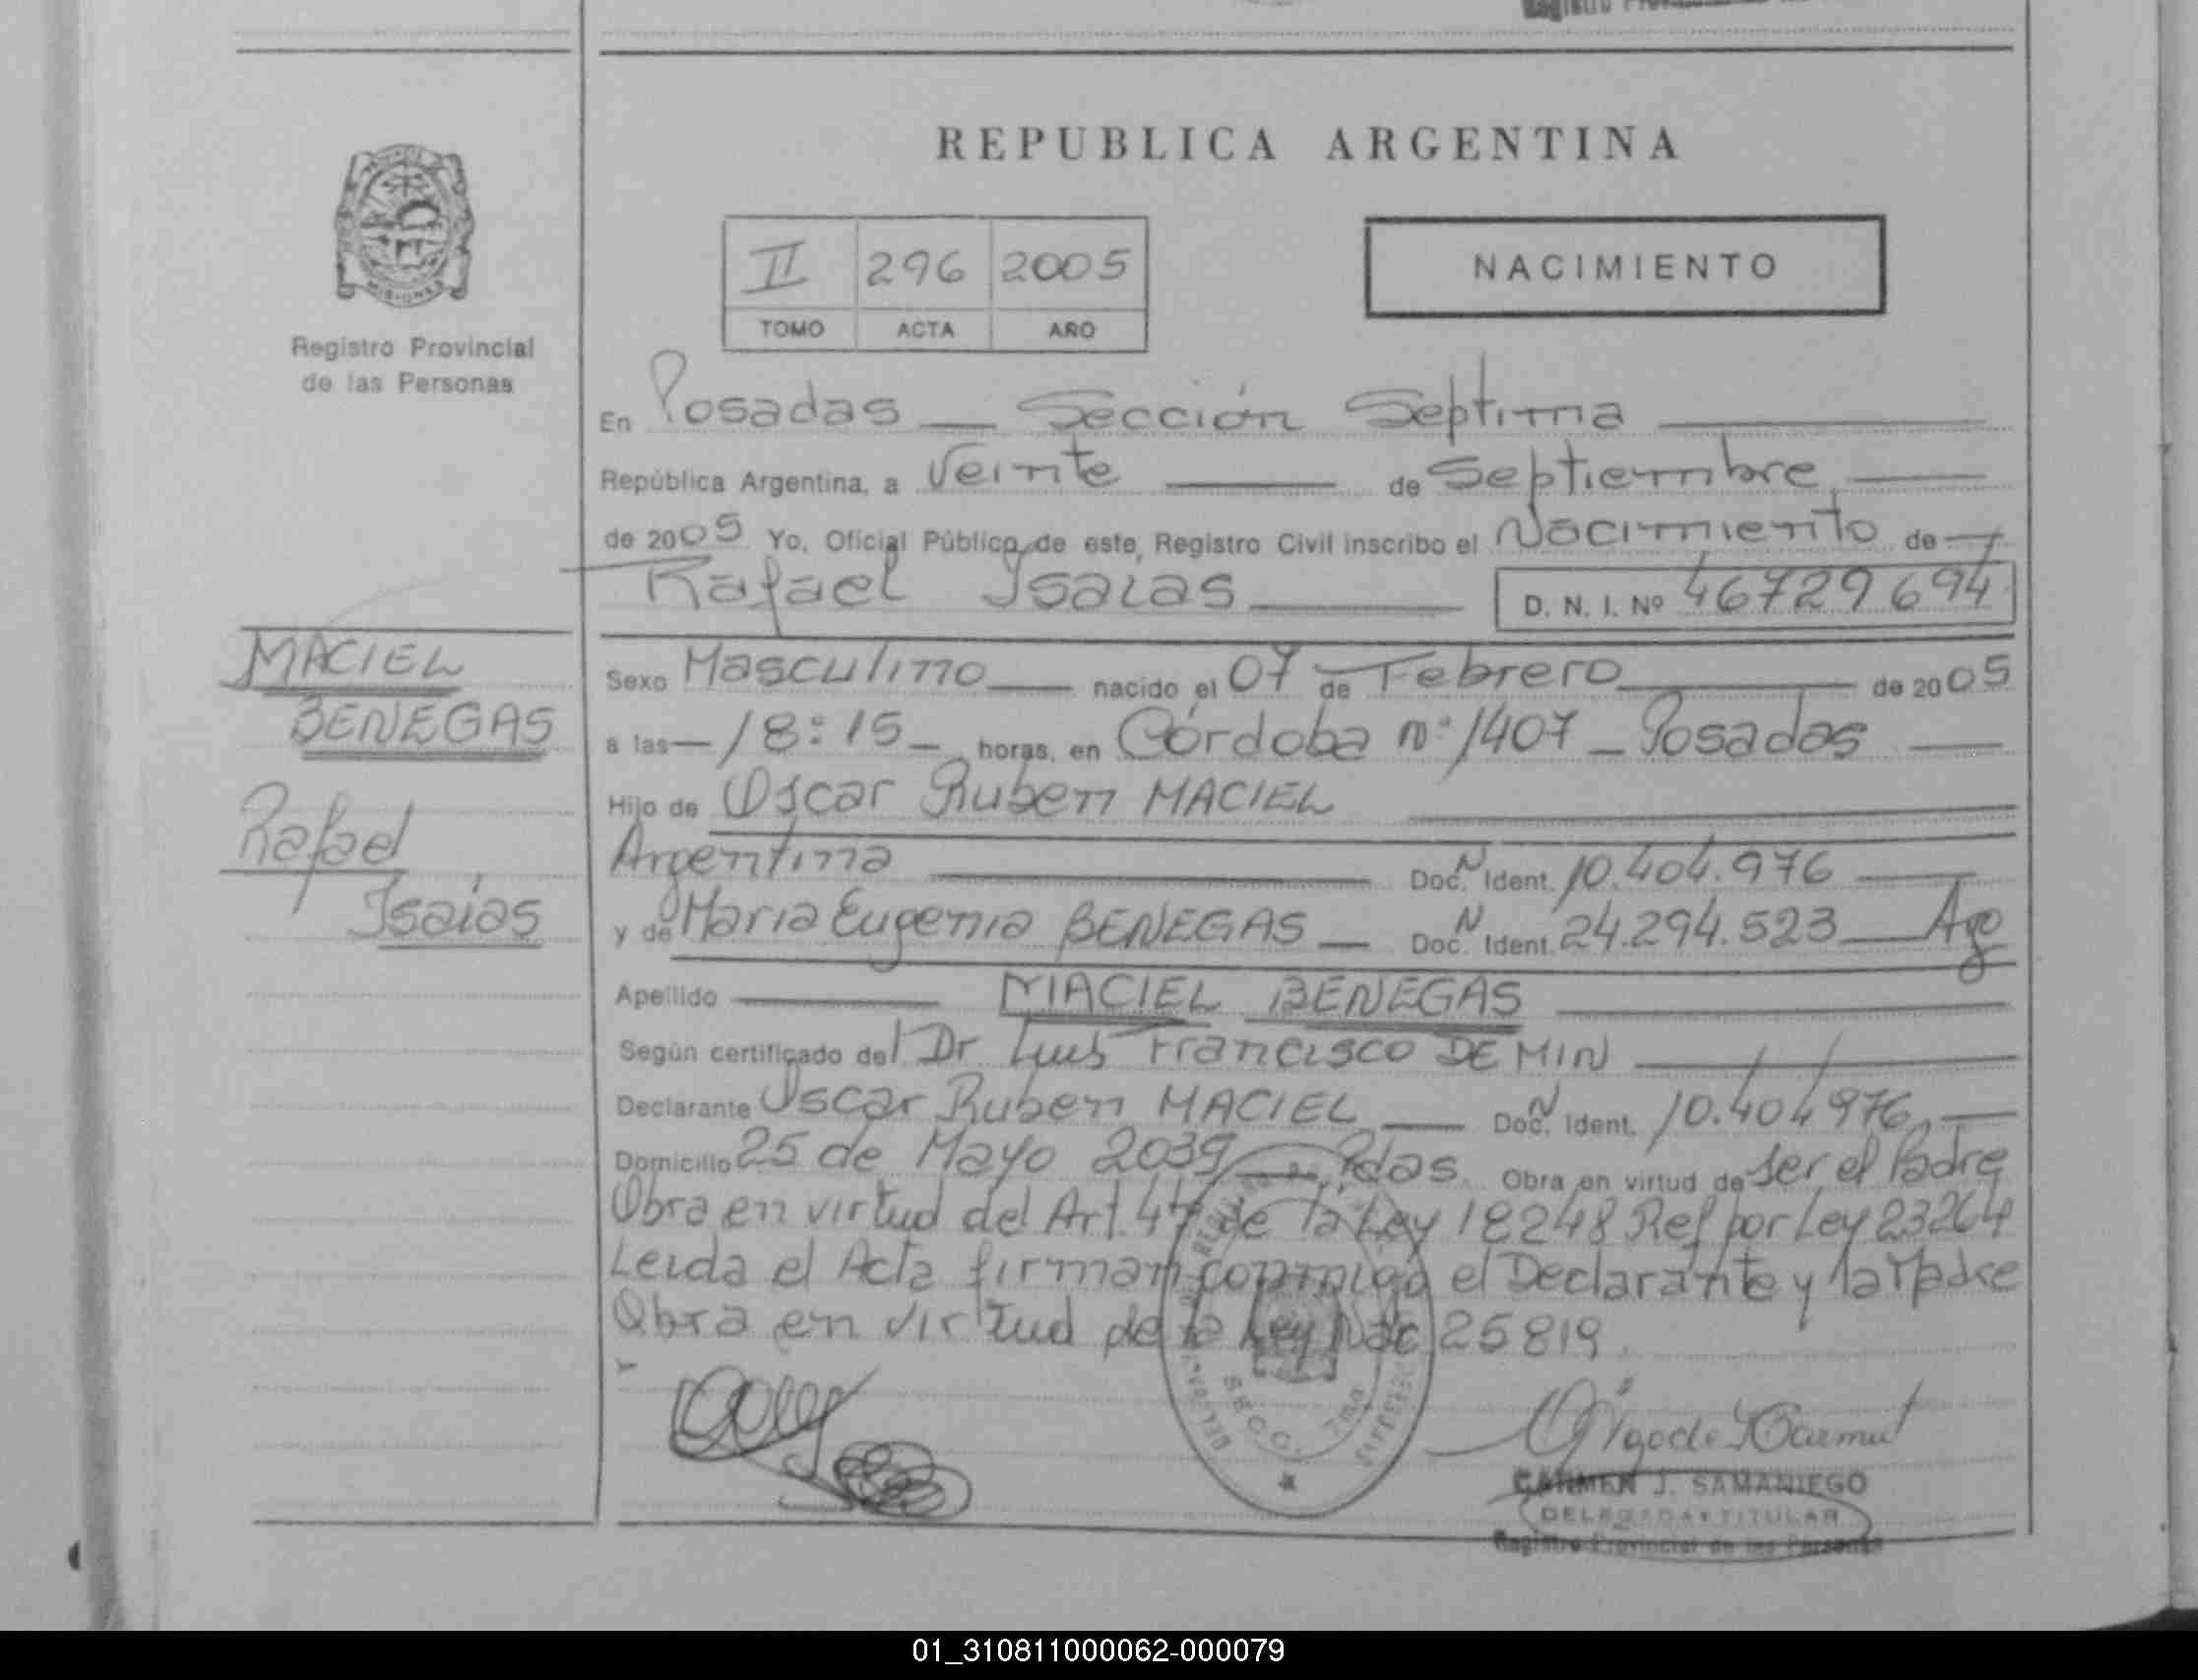 REPUBLICA ARGENTINA
MISIONES
Registro Provincial
de las Personas
II 296 2005
TOMO ACTA AÑO
NACIMIENTO
En Posadas — Sección Septima
República Argentina, a Veinte de Septiembre
de 2005 Yo, Oficial Público de este, Registro Civil inscribo el Nacimiento de
Rafael Isaias D. N. I. Nº 46729694
MACIEL
BENEGAS
Rafael
Isaías
Sexo Masculino nacido el 07 de Febrero de 2005
a las — 18:15 — horas, en Córdoba nº 1407 — Posadas
Hijo de Oscar Ruben MACIEL
Argentina Doc. N Ident. 10.404.976
y de Maria Eugenia BENEGAS — Doc. N Ident. 24.294.523 Arg
Apellido MACIEL BENEGAS
Según certificado del Dr Luis Francisco DE MIN
Declarante Oscar Ruben MACIEL Doc. N Ident. 10.404976
Domicilio 25 de Mayo 2039 — Pdas. Obra en virtud de ser el Padre
Obra en virtud del Art. 4º de la Ley 18248 Ref por Ley 23264
Leida el Acta firman conmigo el Declarante y la Madre
Obra en virtud de la Ley Nac 25819.
SECC. 7ma
CARMEN J. SAMANIEGO
DELEGADA TITULAR
Registro Provincial de las Personas
01_310811000062-000079